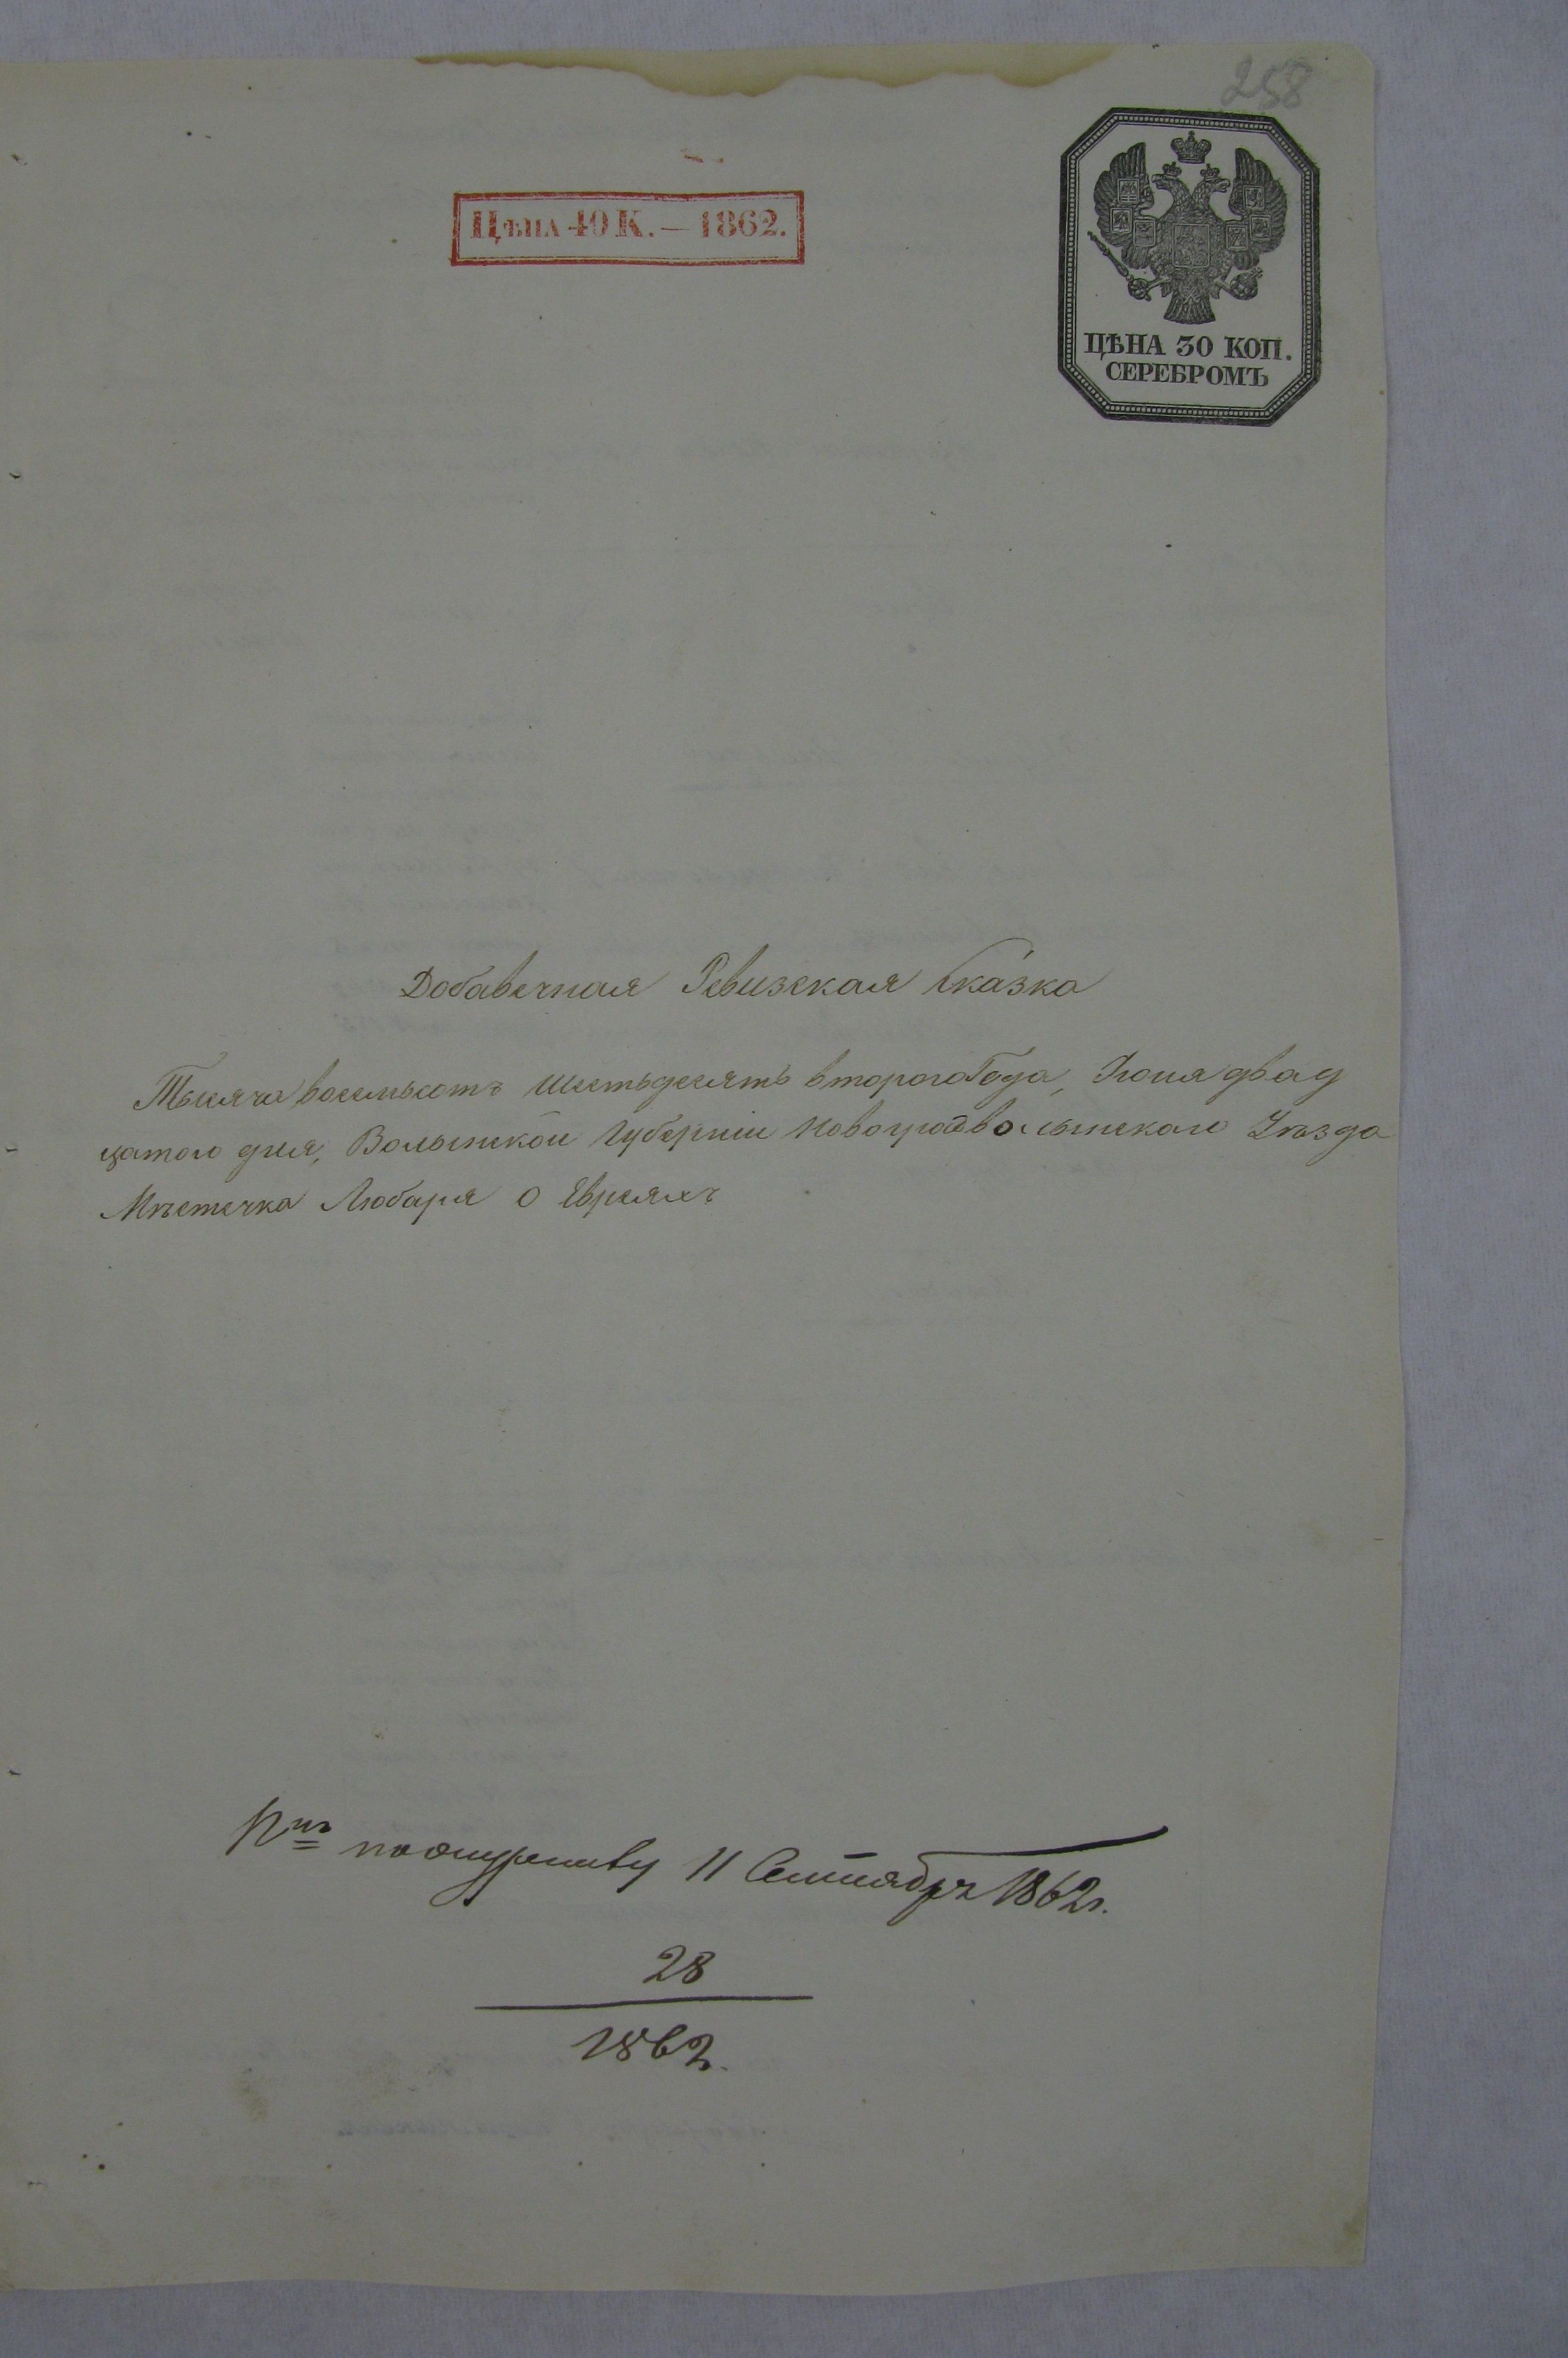 258
Цѣна 40 К. — 1862.
ЦѢНА 30 КОП.
СЕРЕБРОМЪ
Добавечная Ревизская Сказка
Тысяча восемьсотъ шестьдесятъ втораго Года, Іюня двад
цатого дня, Волынской Губерніи Новоградволынскаго Уѣзда
Мѣстечка Любаря о Евреяхъ
11 Сентября 1862 г.
28
1862.